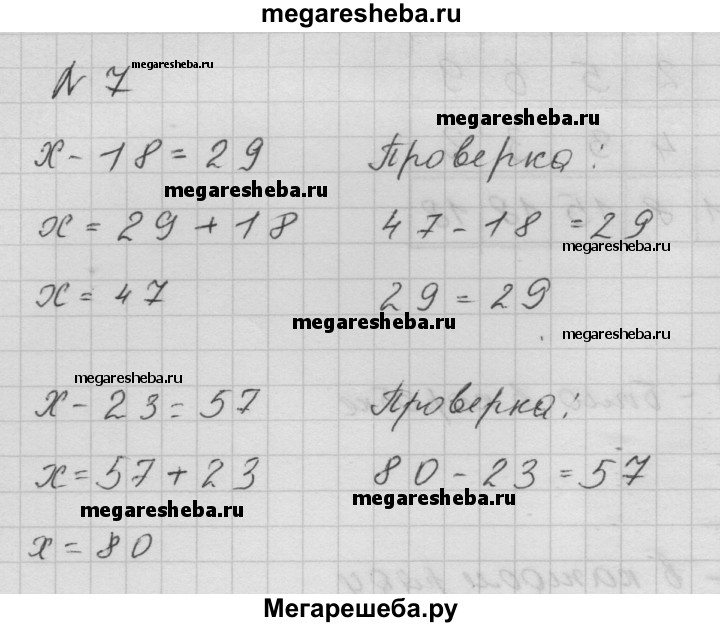 megaresheba.ru
N 7 megaresheba.ru
megaresheba.ru
x - 18 = 29 Проверка:
megaresheba.ru
x = 29 + 18 47 - 18 = 29
megaresheba.ru
x = 47 29 = 29
megaresheba.ru
megaresheba.ru
megaresheba.ru
x - 23 = 57 Проверка:
x = 57 + 23 80 - 23 = 57
megaresheba.ru
megaresheba.ru
x = 80
Мегарешеба.ру